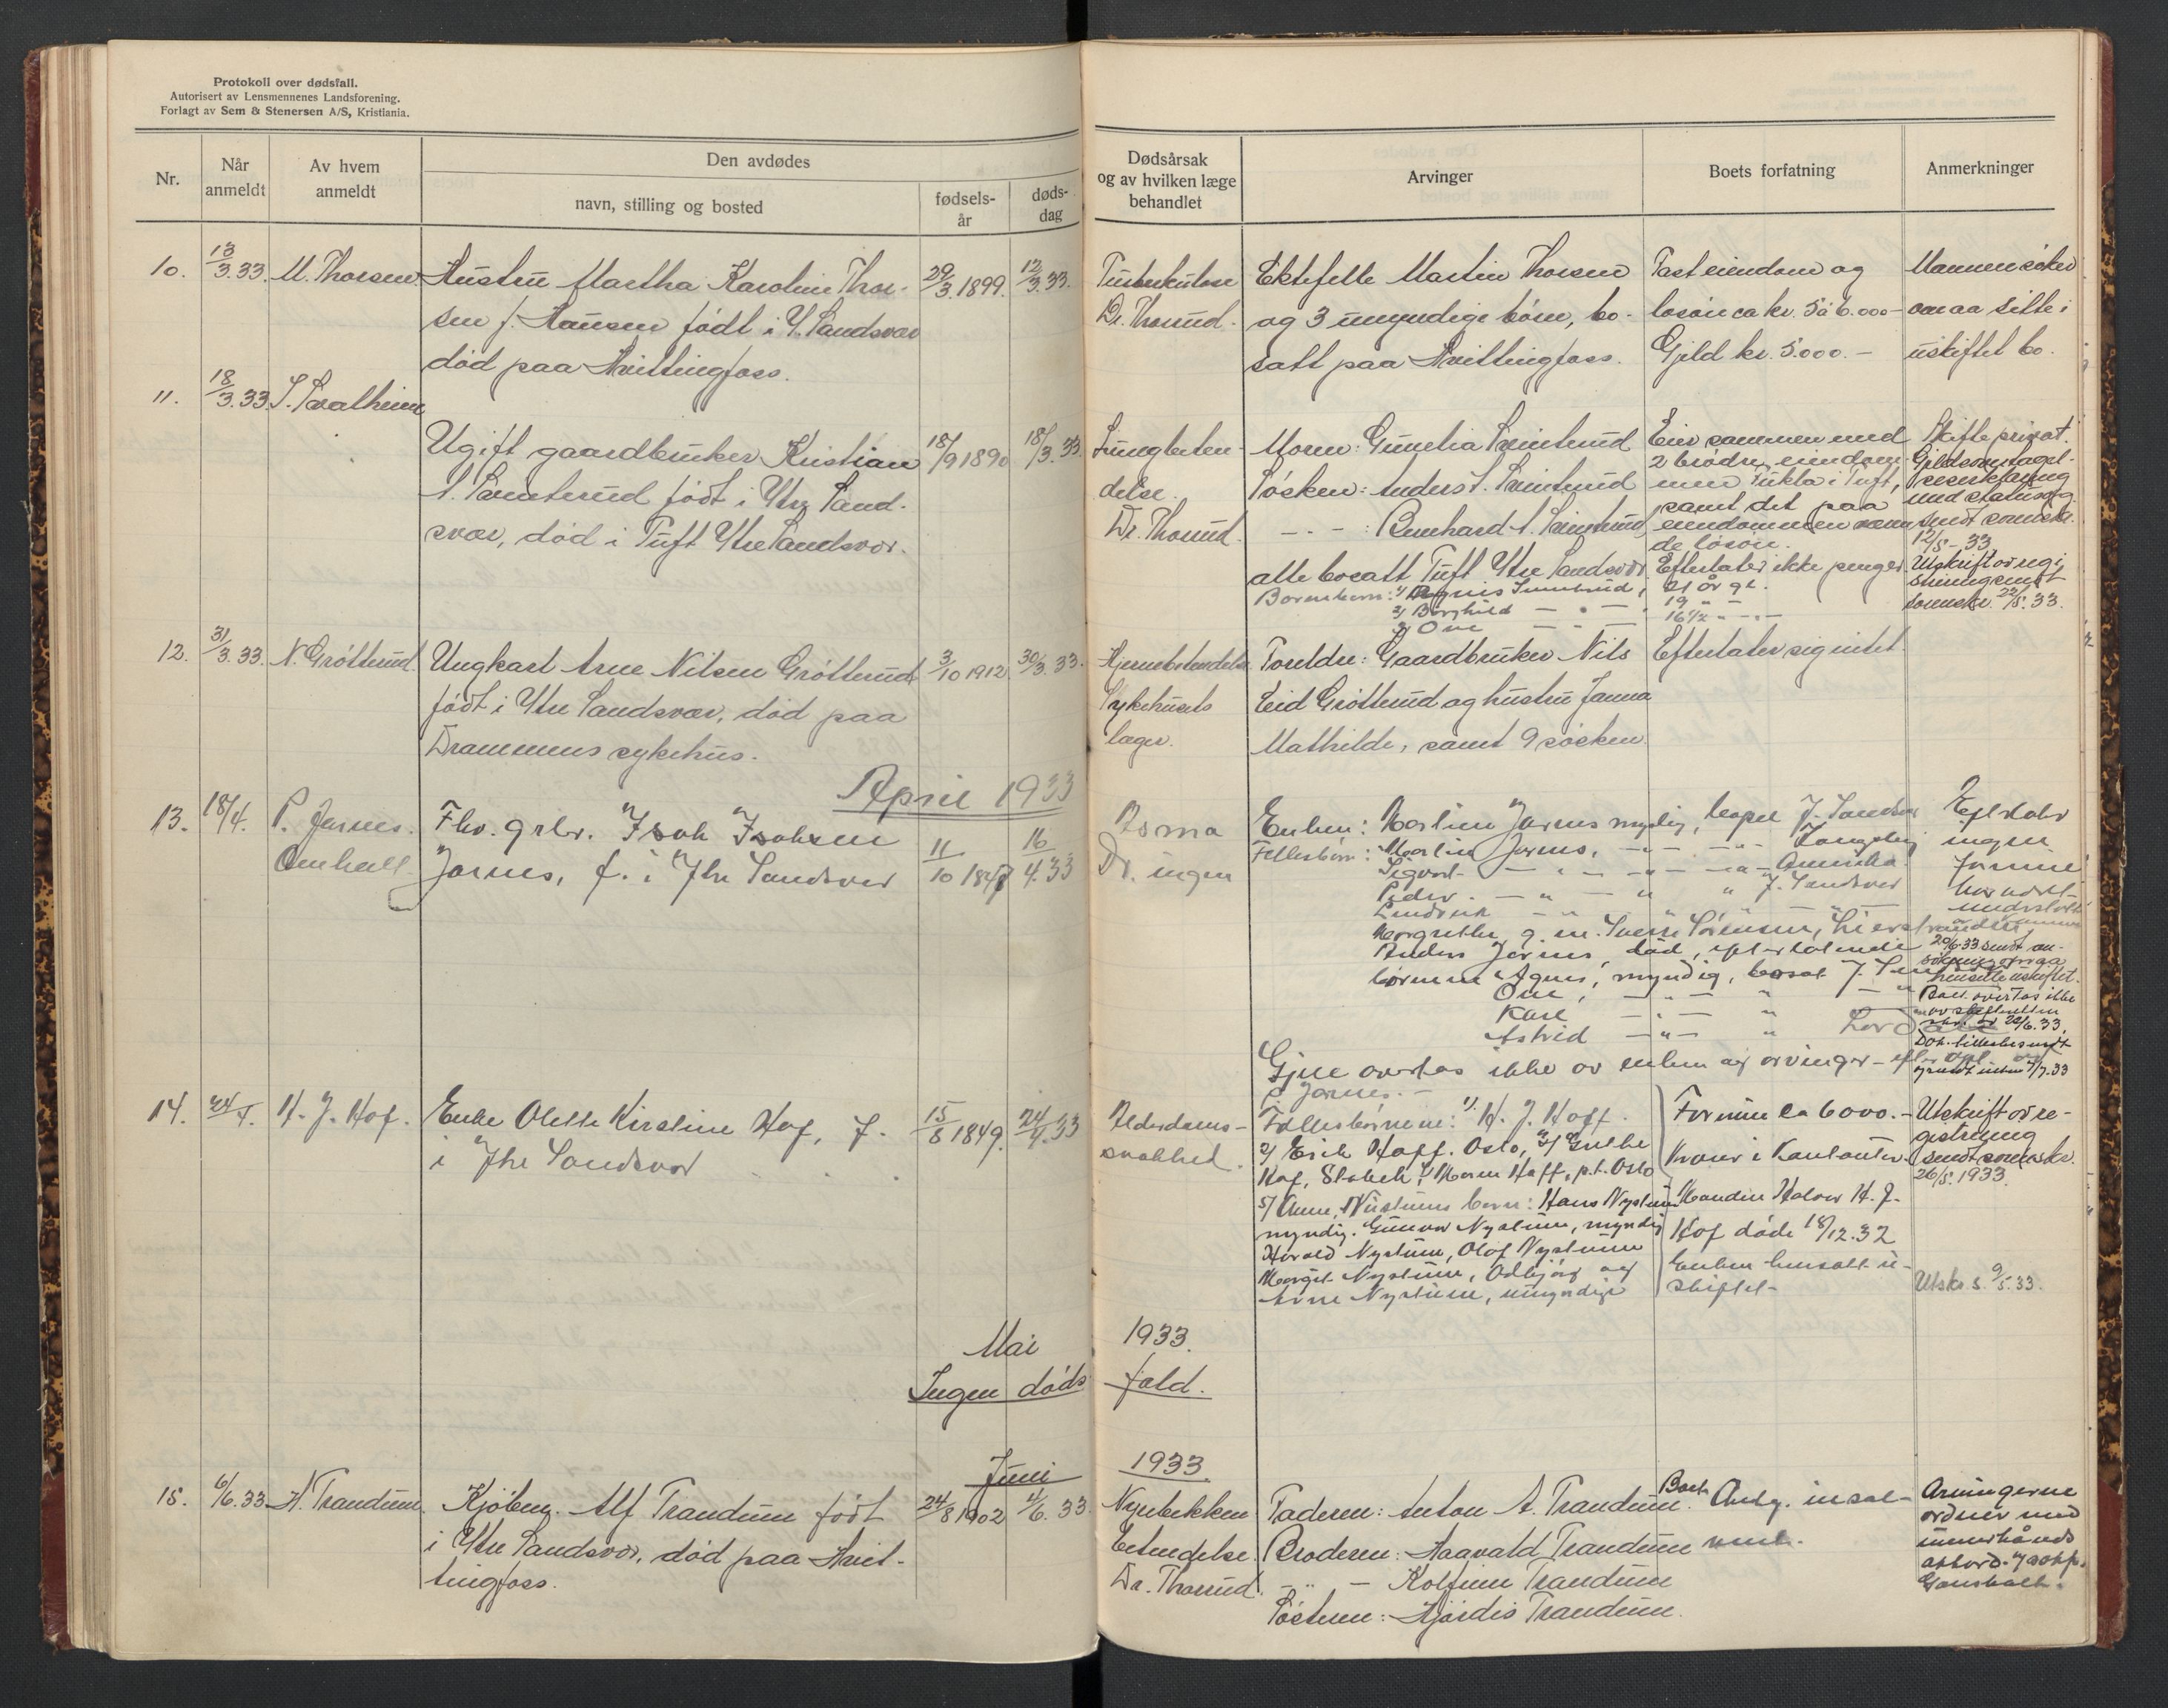 Protokoll over dødsfall.
Autorisert av Lensmennenes Landsforening.
Forlagt av Sem & Stenersen A/S, Kristiania.
Nr.
Når
anmeldt
Av hvem
anmeldt
Den avdødes
navn, stilling og bosted
fødsels-
år
døds-
dag
Dødsårsak
og av hvilken læge
behandlet
Arvinger
Boets forfatning
Anmerkninger
10.
13/3.33.
M. Thorsen
Hustru Martha Karoline Thor-
sen f. Hansen født i Y. Sandsvær
død paa Hvittingfoss.
29/3.1899.
12/3.33.
Tuberkulose
Dr. Thorud.
Ektefelle Martin Thorsen
og 3 umyndige børn, bo-
satt paa Hvittingfoss.
Fast eiendom og
løsøre ca kr. 5 à 6.000 -
Gjeld kr. 5.000. -
Mannen søker
om aa sitte i
uskiftet bo.
11.
18/3.33.
Ugift gaardbruker Kristian
født i Ytre Sand-
svær, død i Tuft Ytre Sandsvær.
18/9 1890
18/3.33.
Lungebeten-
delse.
Dr. Thorud.
Moren:
Søsken: Anders
- . - : Bernhard
alle bosatt Tuft Ytre Sandsvær.
Barnebarn: 1) Agnis
2) Borghild - " -
3) Ove - " -
Eier sammen med
2 brødre eiendom-
men i Tuft,
samt det paa
eiendommen væren-
de løsøre.
Efterlater ikke penger.
21 år gl.
19 " -
16 1/2 " - " -
Skifte privat.
Gjeldsovertagel-
seserklæring
med
sendt sorenskr.
12/5 - 33
Utskrift av regi-
strering sendt
sorenskr. 22/5. 33.
12.
31/3.33.
N. Grøtterud.
Ungkarl Arne Nilsen Grøtterud
født i Ytre Sandsvær, død paa
Drammens sykehus.
3/10 1912
30/3.33.
Hjernebetendelse
Sykehusets
læger.
Foreldre: Gaardbruker Nils
Eid Grøtterud og hustru Janna
Mathilde, samt 9 søsken.
Efterlater sig intet.
April 1933
13.
18/4.
P. Jarnes.
Omholt.
Fhv. grbr. Isak Isaksen
Jarnes, f. i Ytre Sandsver
11/10 1847
16/4.33
Asma
Dr. ingen
Enken:
Jarnes myndig, bopel Y. Sandsv
Fellesbørn: Martin Jarnes,
Sigvart - " - Amerika
Peder - " - " Y. Sandsver
Margrethe g. m.
Anders Jarnes, død, efterlatende
børnene Agnes, myndig, bosat Y.
Ove, - " -
Kåre - " -
Astrid - " - "
Gjeld overtas ikke av enken og arvinger -
P. Jarnes. -
Efterlater
ingen
formue
20/6.33 sendt an-
søkning om aa
hensitte i uskiftet.
Boet overtas ikke
av skifteretten
22/6.33.
14.
24/4.
H. J. Hof.
Enke Olette Kirstine Hof, f.
i Ytre Sandsver
15/8 1849.
24/4.33
Alderdoms-
svakhet.
Fellesbørnene: 1) H. J. Hoff.
2) Erik Hoff. Oslo, 3)
Hof, Stabek, 4) Maren Hoff, p.t. Oslo
5) Anne Nystuens børn: Hans Nystuen
myndig. Gunvor Nystuen, myndig
Harald Nystuen, Olaf Nystuen
Margit Nystuen, Odbjørg og
Arne Nystuen, umyndige
Formue ca 6000. -
Kroner i Kontanter.
Manden Halvor H. J.
Hof døde 18/12.32
Enken hensatt u-
skiftet -
Utskrift av re-
gistrering
sendt sorenskr.
26/5. 1933.
Utskr. s. 9/5.33.
Mai 1933.
Ingen dødsfald.
Juni 1933.
15.
6/6.33
H. Trandum.
Kjøbm. Alf Trandum født
i Ytre Sandsvær, død paa Hvit-
tingfoss.
24/8 1902
4/6.33
Nyrebekken
betendelse.
Dr. Thorud.
Faderen: Anton A. Trandum.
Broderen: Haavald Trandum
- " - Kolfinn Trandum
Søsteren: Hjørdis Trandum.
Boet Antg. insol-
vent.
Arvingerne
ordner med
underhånds
akkord.